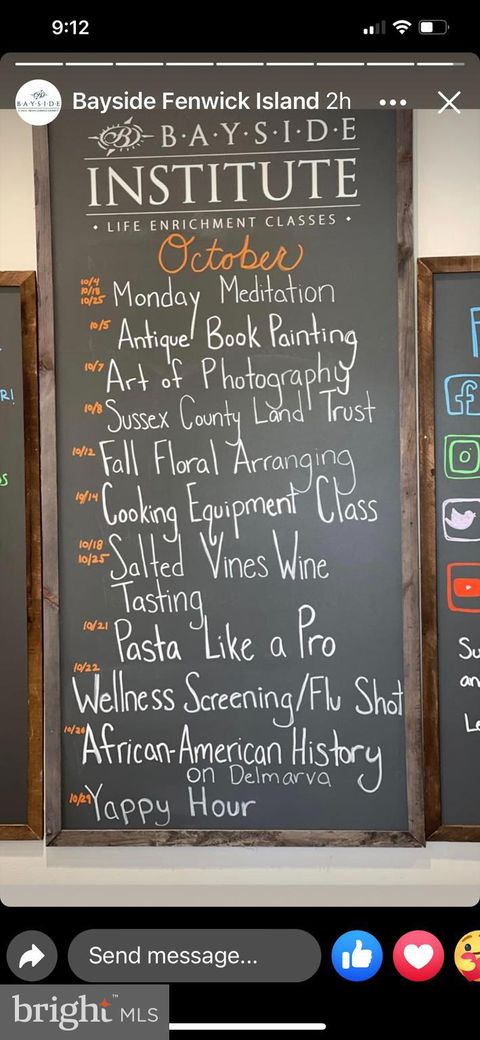 9:12
Bayside Fenwick Island 2h
BAYSIDE
B·A·Y·S·I·D·E
INSTITUTE
• LIFE ENRICHMENT CLASSES •
October
10/4
10/18
10/25
Monday Meditation
10/5
Antique Book Painting
10/7
Art of Photography
10/8
Sussex County Land Trust
10/12
Fall Floral Arranging
10/14
Cooking Equipment Class
10/18
10/25
Salted Vines Wine
Tasting
10/21
Pasta Like a Pro
10/22
Wellness Screening/Flu Shot
10/26
African-American History
on Delmarva
10/29
Yappy Hour
R!
Su
an
Le
Send message...
bright™ MLS